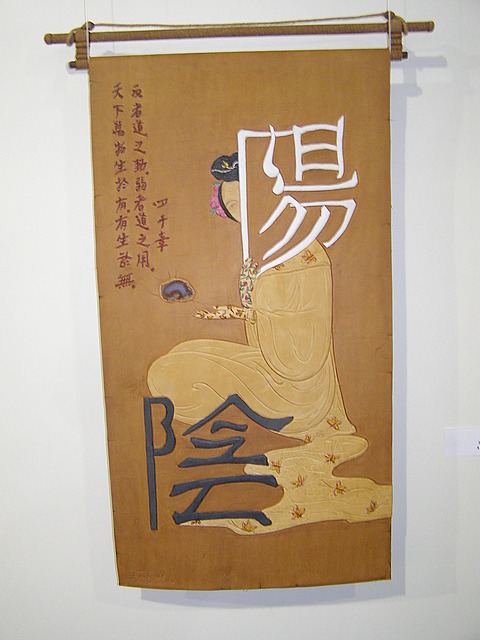 陽
陰
反者道之動。弱者道之用。
天下萬物生於有，有生於無。
四十章